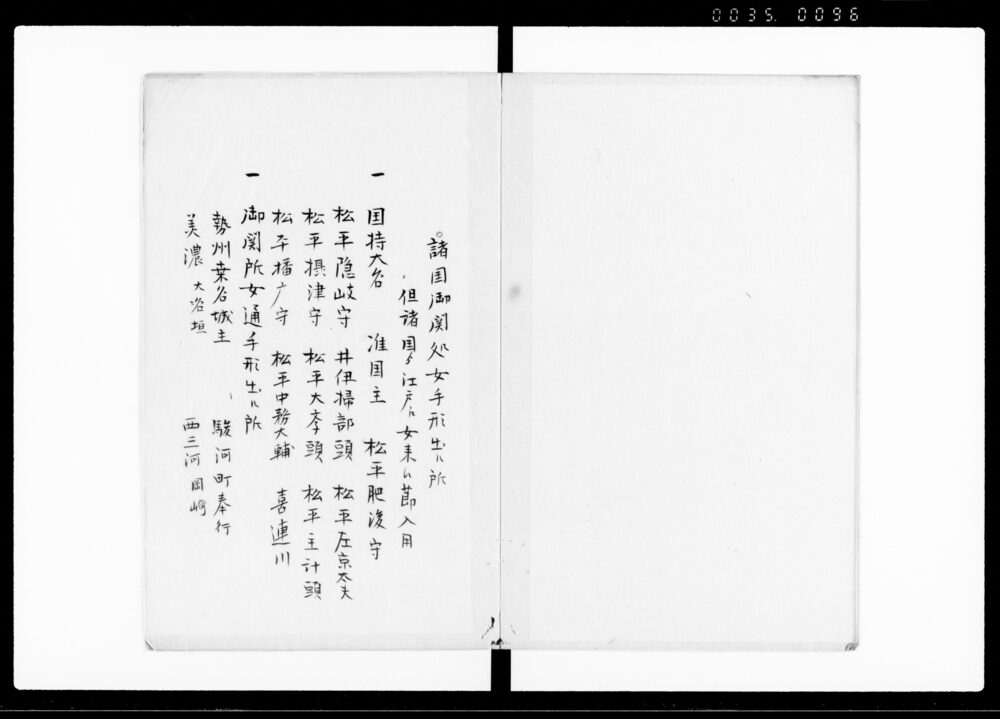 0035. 0096
○諸国御関処女手形出ル所
但諸国ゟ江戸江女来ル節入用
一 国持大名 准国主 松平肥後守
松平隠岐守 井伊掃部頭 松平左京太夫
松平摂津守 松平大学頭 松平主計頭
松平播广守 松平中務大輔 喜連川
一 御関所女通手形出ル所
勢州桑名城主 駿河町奉行
美濃 大垣 西三河岡崎